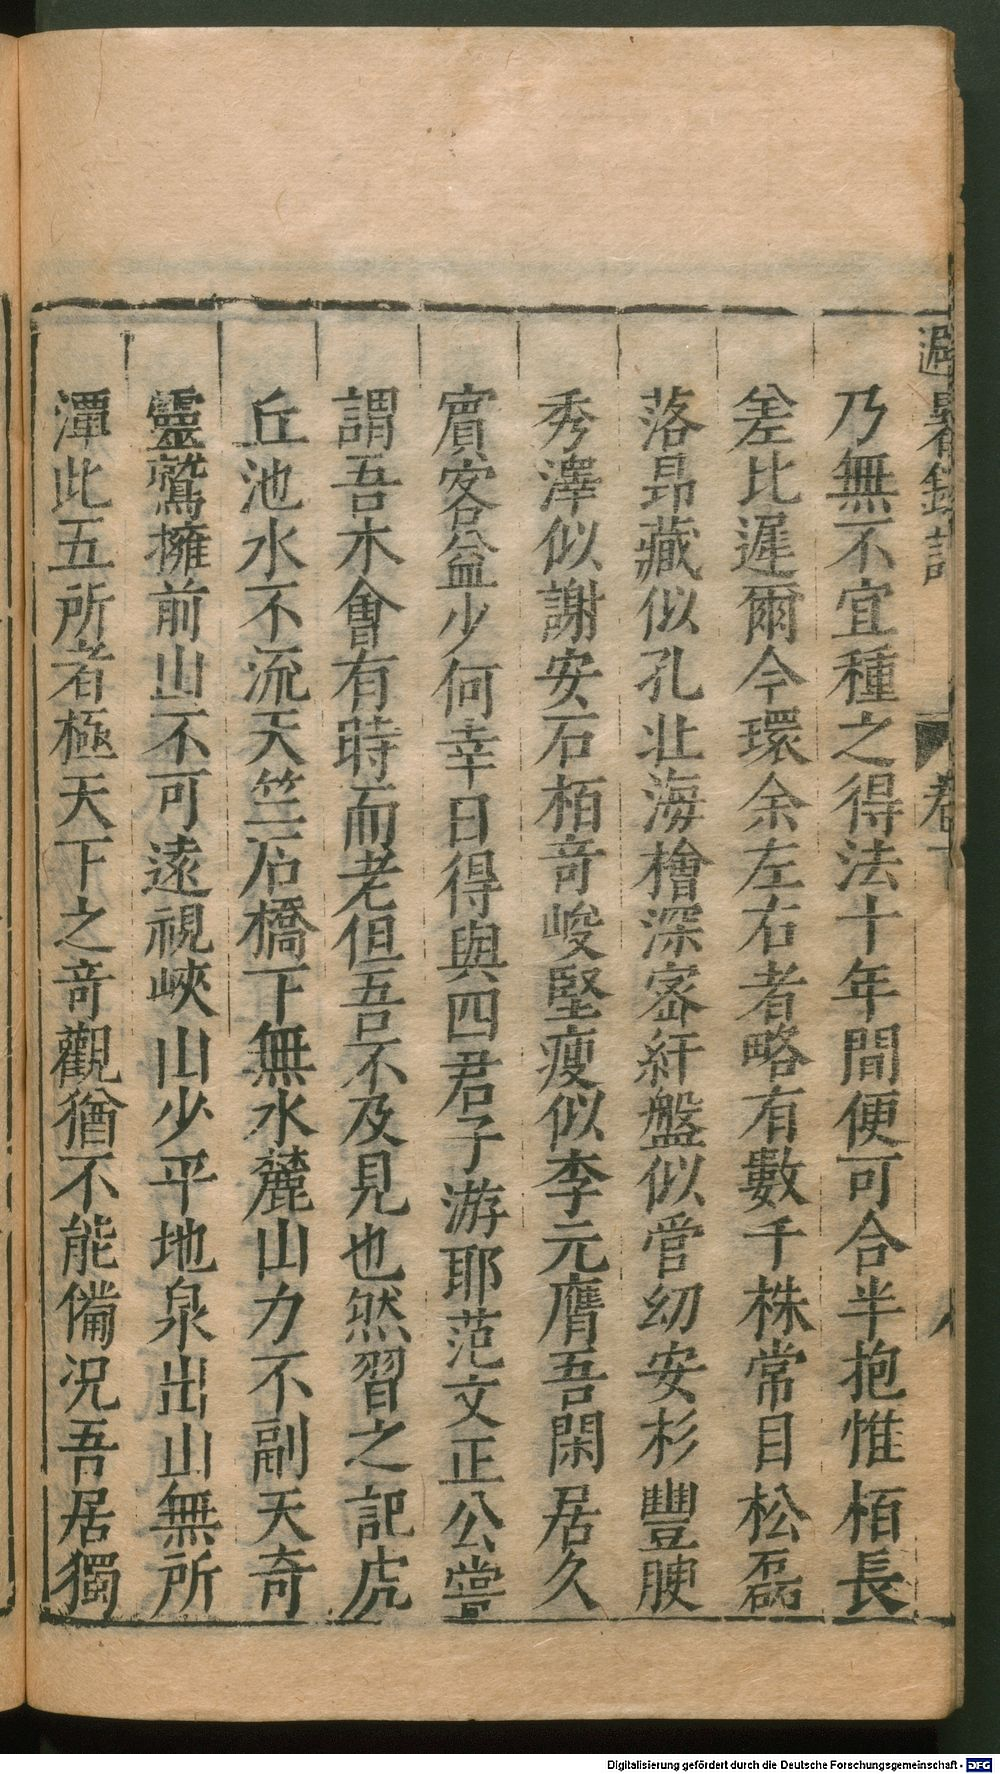 避暑錄話
卷下
八
乃無不宜種之得法十年間便可合半抱惟栢長
差比遲爾今環余左右者略有數千株常目松磊
落昻藏似孔北海檜深宻紆盤似管幼安杉豐腴
秀澤似謝安石栢竒峻堅瘦似李元膺吾閑居久
賓客益少何幸日得與四君子游耶范文正公嘗
謂吾木會有時而老但吾不及見也然習之記虎
丘池水不流天竺石橋下無水麓山力不副天奇
靈鷲擁前山不可遠視峽山少平地泉出山無所
潭此五所者極天下之竒觀猶不能備况吾居獨
Digitalisierung gefördert durch die Deutsche Forschungsgemeinschaft - DFG